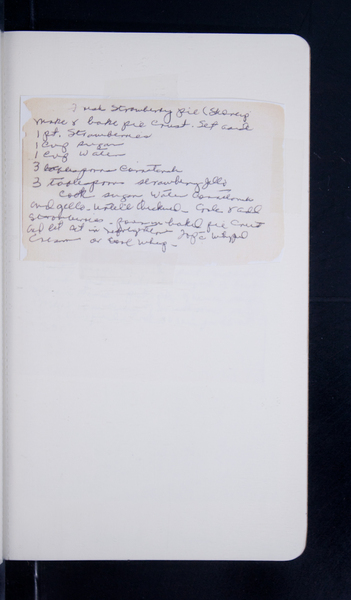 Fresh Strawberry pie (Sherry
make & bake pie crust. Set aside
1 pt. Strawberries
1 cup sugar
1 cup Water
3 tablespoons Cornstarch
3 tablespoons strawberry Jello
Cook sugar Water Cornstarch
and jello - until thickened - Cool & add
strawberries - pour in baked pie Crust
and let set in refrigerator Top c Whipped
Cream or Cool Whip -